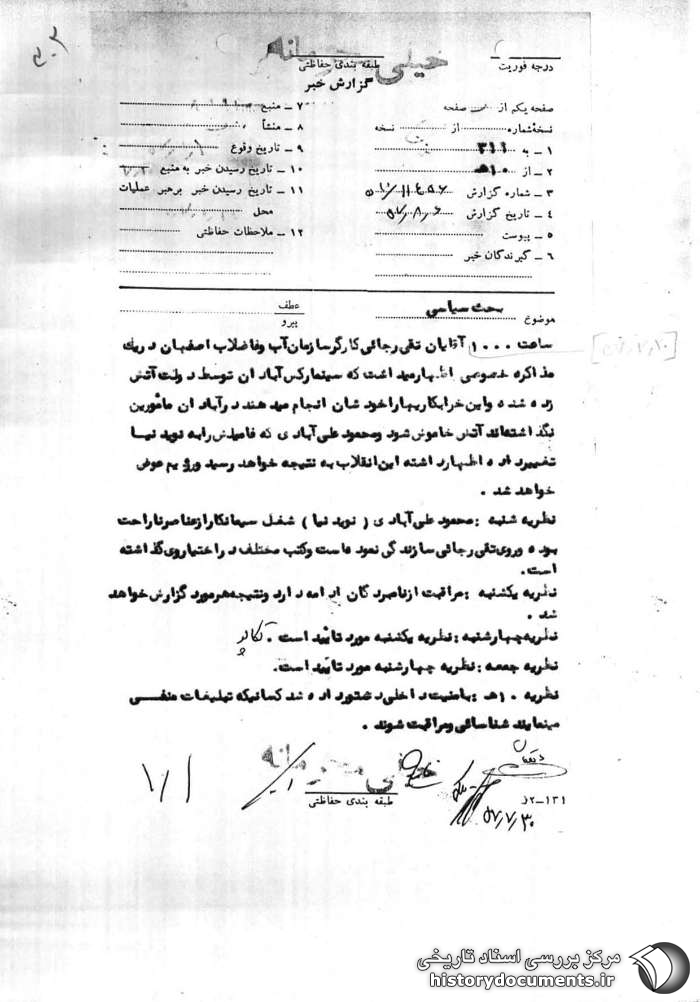 خیلی محرمانه
درجه فوریت
طبقه بندی حفاظتی
گزارش خبر
صفحه یکم از صفحه
نسخهٔ شماره از نسخه
۱ ـ به ۳۱۱
۲ ـ از ۱۰هـ
۳ ـ شماره گزارش
۴ ـ تاریخ گزارش ۵۷٫۸٫۶
۵ ـ پیوست
۶ ـ گیرندگان خبر
۷ ـ منبع
۸ ـ منشأ
۹ ـ تاریخ وقوع
۱۰ ـ تاریخ رسیدن خبر به منبع
۱۱ ـ تاریخ رسیدن خبر برهبر عملیات
محل
۱۲ ـ ملاحظات حفاظتی
موضوع بحث سیاسی
عطف
پیرو
ساعت ۱۰۰۰ آقایان تقی رجائی کارگر سازمان آب وفاضلاب اصفهان دریک
مذاکره خصوصی اظهارمیداشت که سینمارکس آبادان توسط دولت آتش
زده شده واین خرابکاریهاراخودشان انجام میدهند درآبادان مأمورین
نگذاشته‌اند آتش خاموش شود ومحمود علی آبادی که فامیلش رابه نوید نیا
تغییرداده اظهارداشته این انقلاب به نتیجه خواهد رسید ورژیم عوض
خواهد شد .
نظریه شنبه : محمود علی آبادی ( نوید نیا ) شغل سیمانکارازعناصرناراحت
بوده وروی تقی رجائی سازندگی نموده است وکتب مختلف دراختیاروی گذاشته
است.
نظریه یکشنبه : مراقبت ازنامبردگان ادامه دارد ونتیجه هرمورد گزارش خواهد
شد .
نظریه چهارشنبه : نظریه یکشنبه مورد تائید است .
نظریه جمعه : نظریه چهارشنبه مورد تائید است.
نظریه ۱۰هـ : بامنیت داخلی دستور داده شد کسانیکه تبلیغات منفی
مینمایند شناسائی ومراقبت شوند .
خیلی محرمانه
طبقه بندی حفاظتی
۱۳۱ـ۲ز
۵۷٫۷٫۳۰
مرکز بررسی اسناد تاریخی
historydocuments.ir